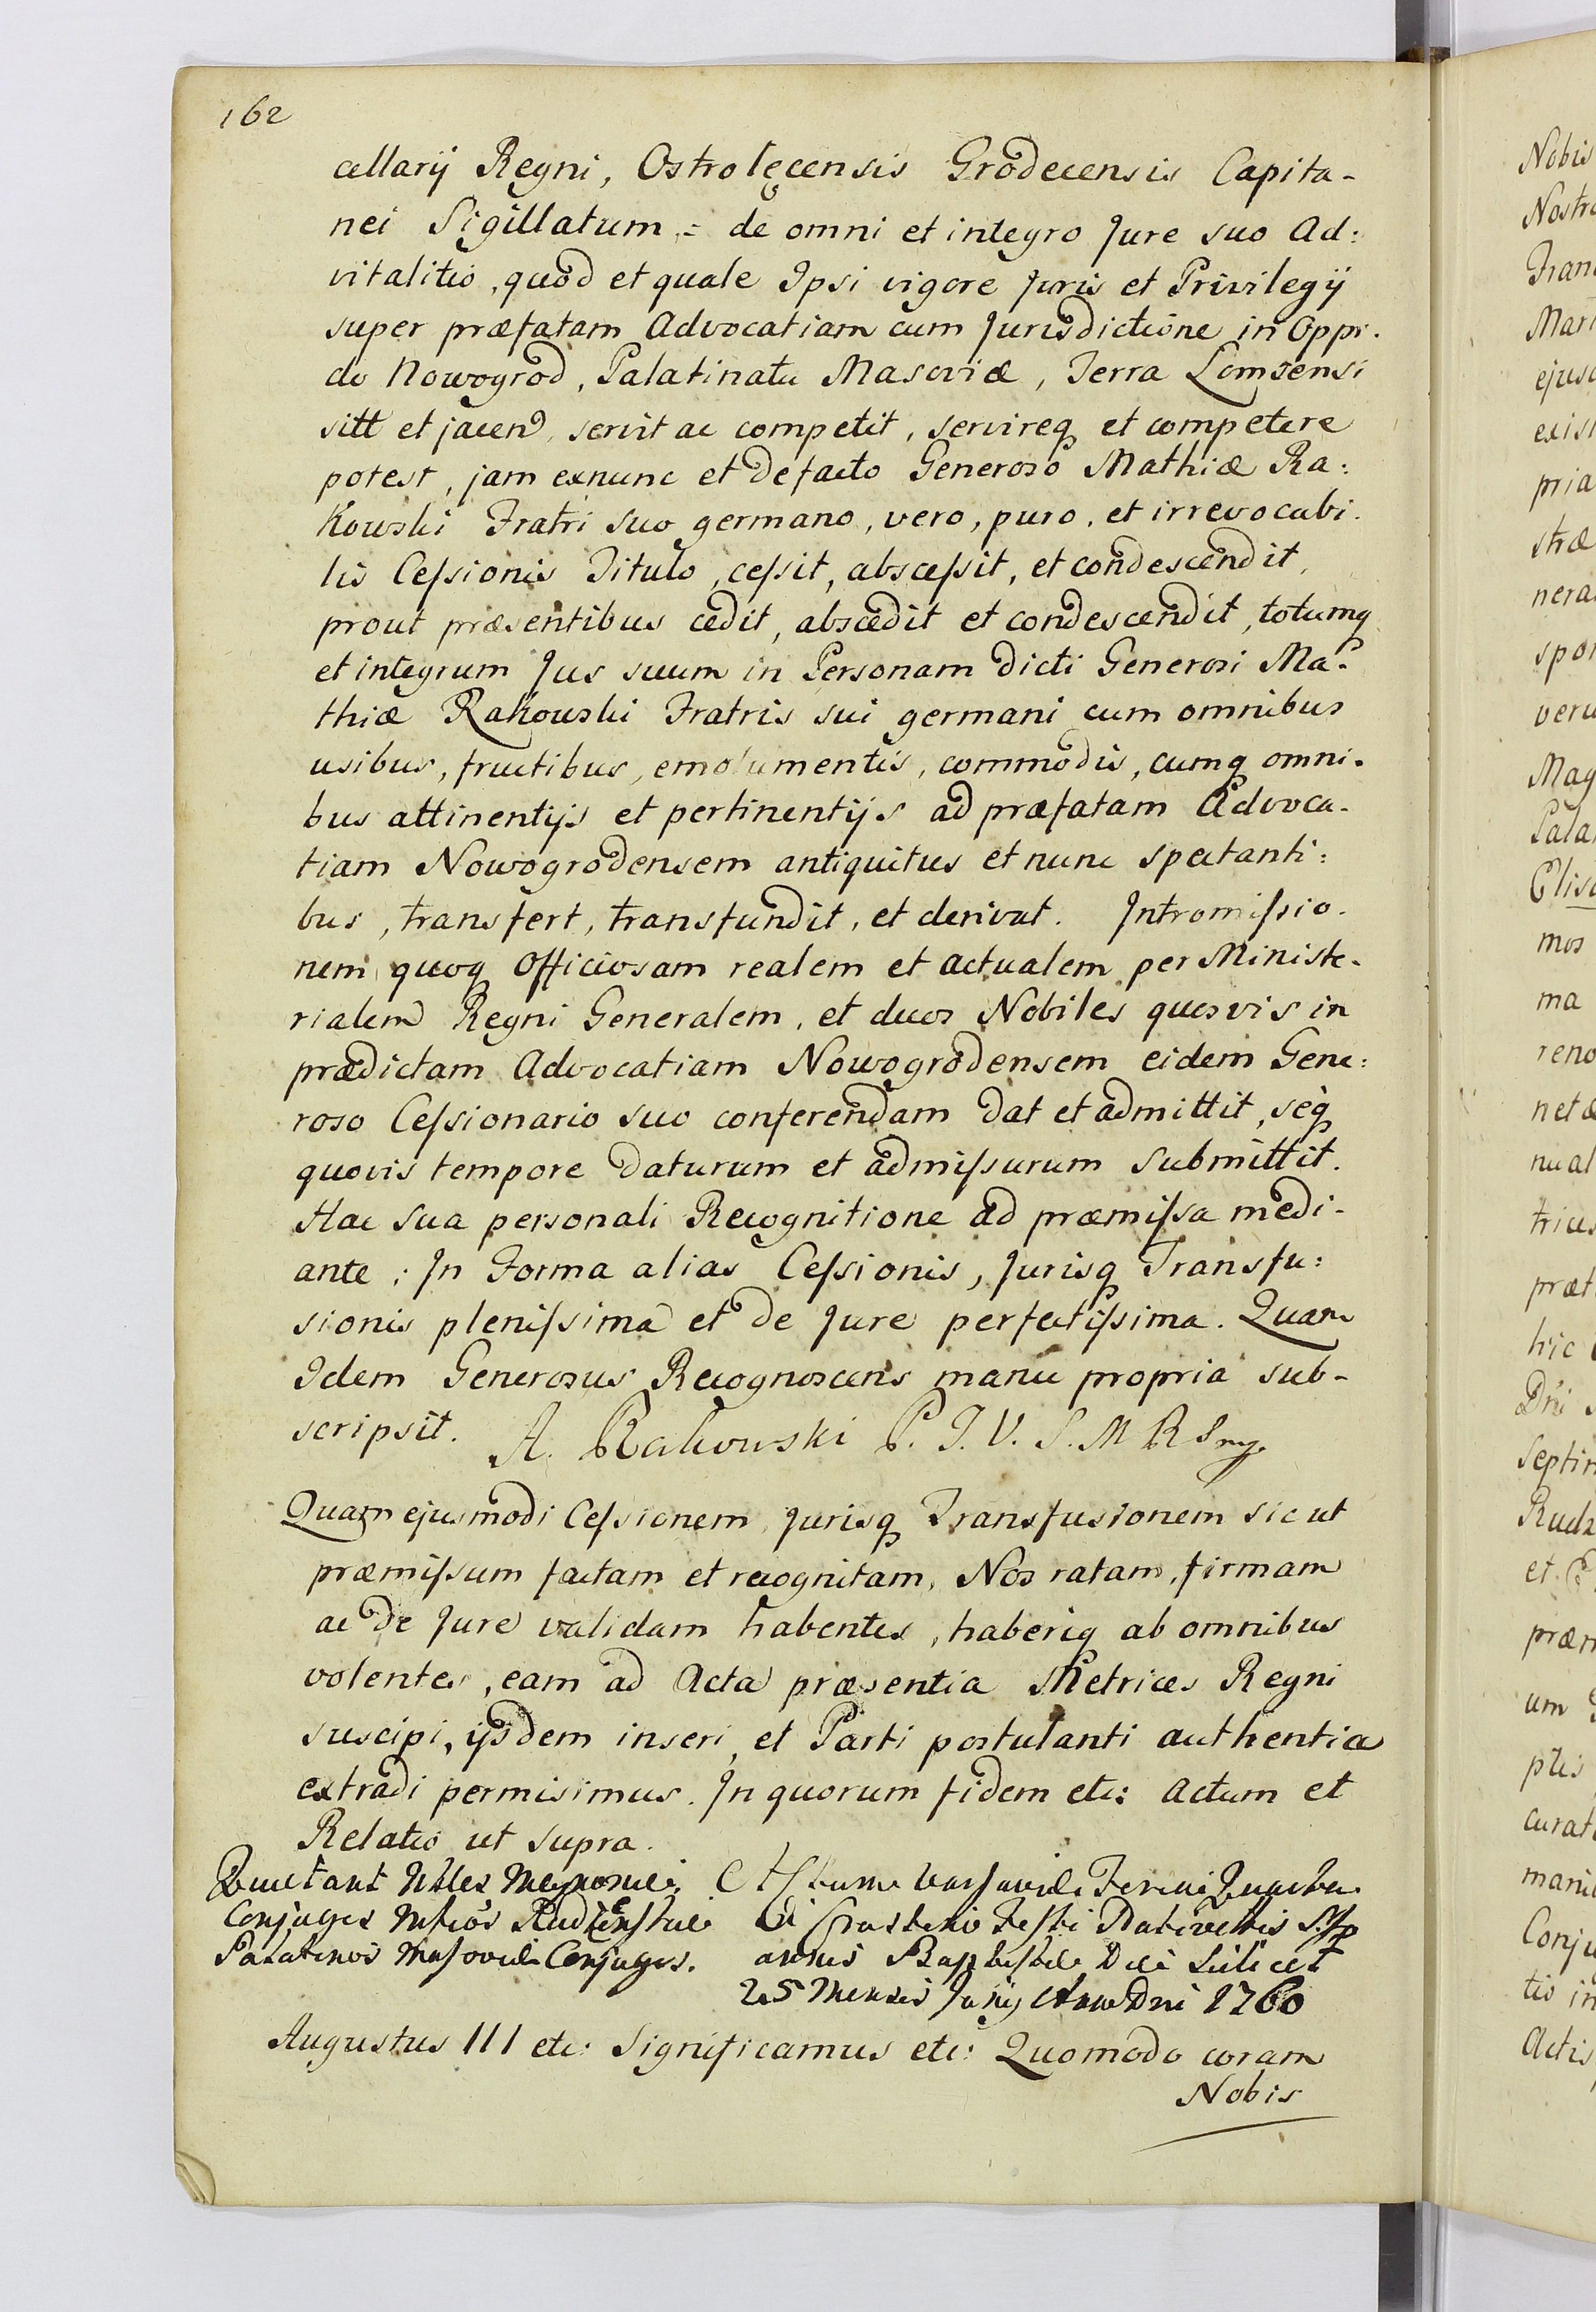 162
cellarij Regni, Ostrolęcensis Grodecensis Capita-
nei Sigillatum = de omni et integro Jure suo Ad:
vitalitio, quod et quale Ipsi vigore Juris et Privilegij
super præfatam Advocatiam cum Jurisdictione in Oppi-
do Nowogrod, Palatinatu Masoviæ, Terra Lomzensi
sitt et jacen, servit ac competit, servireq et competere
potest, jam exnunc et defacto Generoso Mathiæ Ra:
kowski Fratri suo germano, vero, puro, et irrevocabi-
lis Cessionis Titulo, cessit, abscessit, et condescendit,
prout præsentibus cedit, abscedit et condescendit, totumq
et integrum Jus suum in Personam dicti Generosi Ma-
thiæ Rakowski Fratris sui germani cum omnibus
usibus, fructibus, emolumentis, commodis, cumq omni-
bus attinentijs et pertinentijs ad præfatam Advoca-
tiam Nowogrodensem antiquitus et nunc spectanti:
bus, transfert, transfundit, et derivat. Intromissio-
nem quoq Officiosam realem et actualem per Ministe-
rialem Regni Generalem, et duos Nobiles quosvis in
prædictam Advocatiam Nowogrodensem eidem Gene:
roso Cessionario suo conferendam dat et admittit, seq
quovis tempore daturum et admissurum submittit.
Hac sua personali Recognitione ad præmissa medi-
ante; In Forma alias Cessionis, Jurisq Transfu:
sionis plenissima et de Jure perfectissima. Quam
Idem Generosus Recognoscens manu propria sub-
scripsit. A. Rakowski P. T. V. S. M R
Quam ejusmodi Cessionem, Jurisq Transfusionem sic ut
præmissum factam et recognitam, Nos ratam, firmam
ac de Jure validam habentes, haberiq ab omnibus
volentes, eam ad Acta præsentia Metrices Regni
suscipi, ijsdem inseri, et Parti postulanti authentice
extradi permisimus. In quorum fidem etc: Actum et
Relatio ut supra.
Quietant Conjuges
Palatinos Masoviæ Conjuges.
Actum Varsaviæ Feria Quarta
in Crastino Festi Nativitatis S.
annis Baptistæ Die Scilicet
25 Mensis Junij Anno Dni 1760
Augustus III etc: Significamus etc: Quomodo coram
Nobis
Nobis
Nostr
Fran
Mari
ejusd
pria
stræ
nera
spon
veru
Mag
Pala
Elis
mos
ma
reno
net
nual
trius
præt
hic
Dni
Septi
Rudz
et
præm
um
ptis
curat
manu
Conju
tio in
Actis